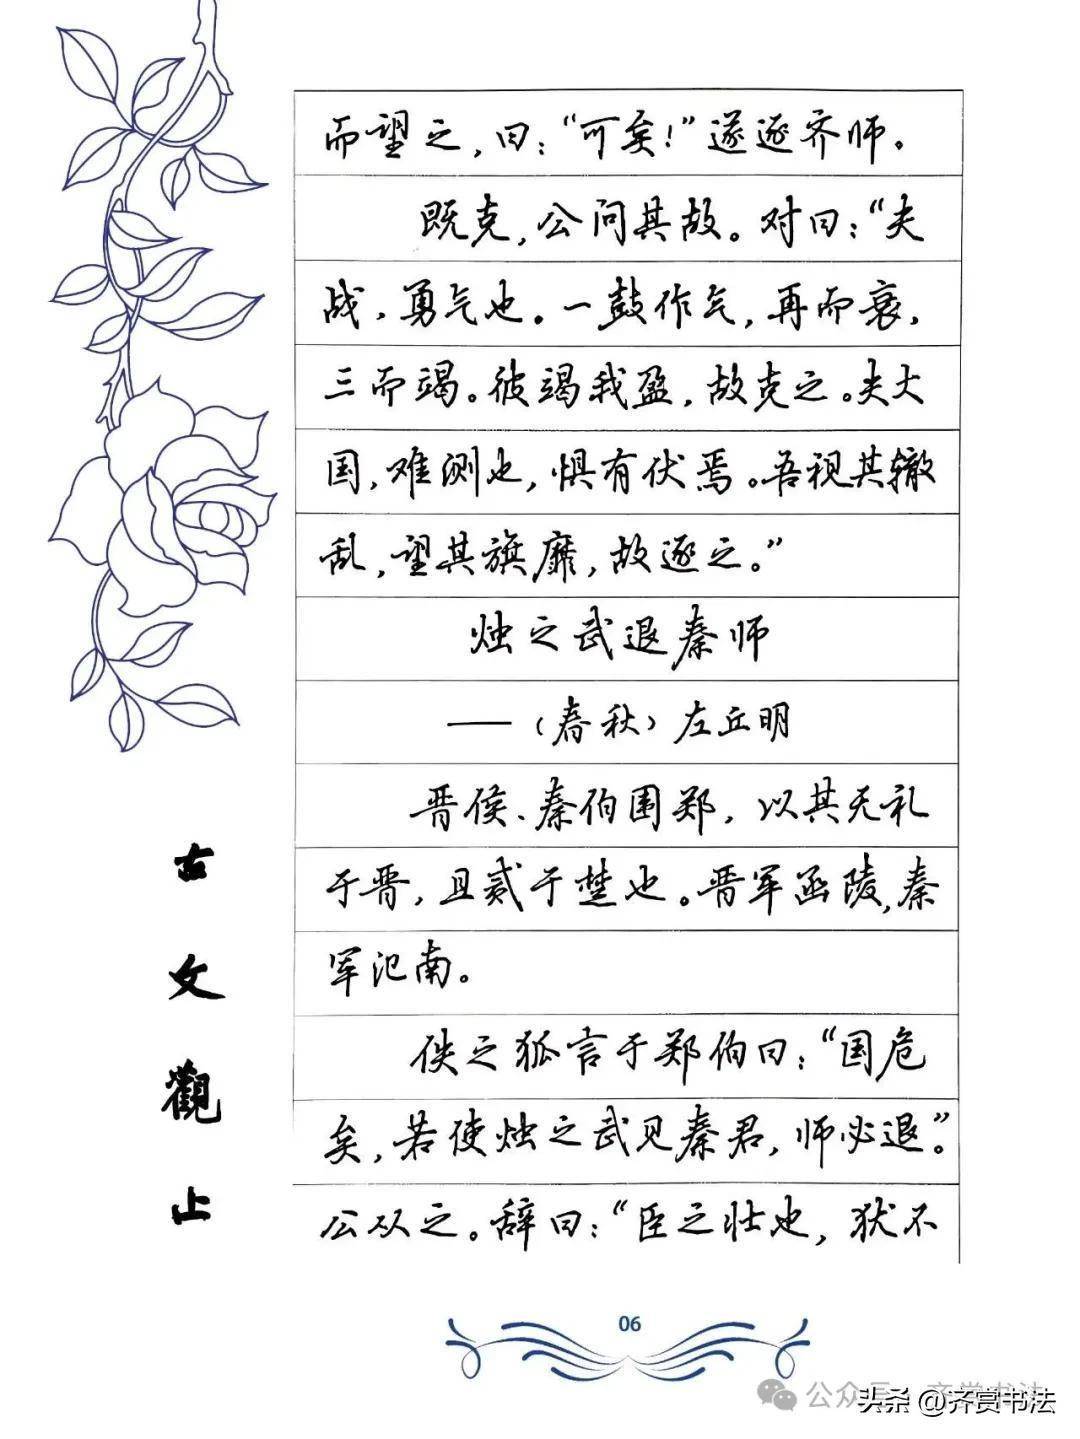 而望之,曰:“可矣!”遂逐齐师。
既克,公问其故。对曰:“夫
战,勇气也。一鼓作气,再而衰,
三而竭。彼竭我盈,故克之。夫大
国,难测也,惧有伏焉。吾视其辙
乱,望其旗靡,故逐之。”
烛之武退秦师
——(春秋)左丘明
晋侯、秦伯围郑,以其无礼
于晋,且贰于楚也。晋军函陵,秦
军氾南。
佚之狐言于郑伯曰:“国危
矣,若使烛之武见秦君,师必退”。
公从之。辞曰:“臣之壮也,犹不
古文觀止
06
公众号·齐赏书法
头条 @齐赏书法